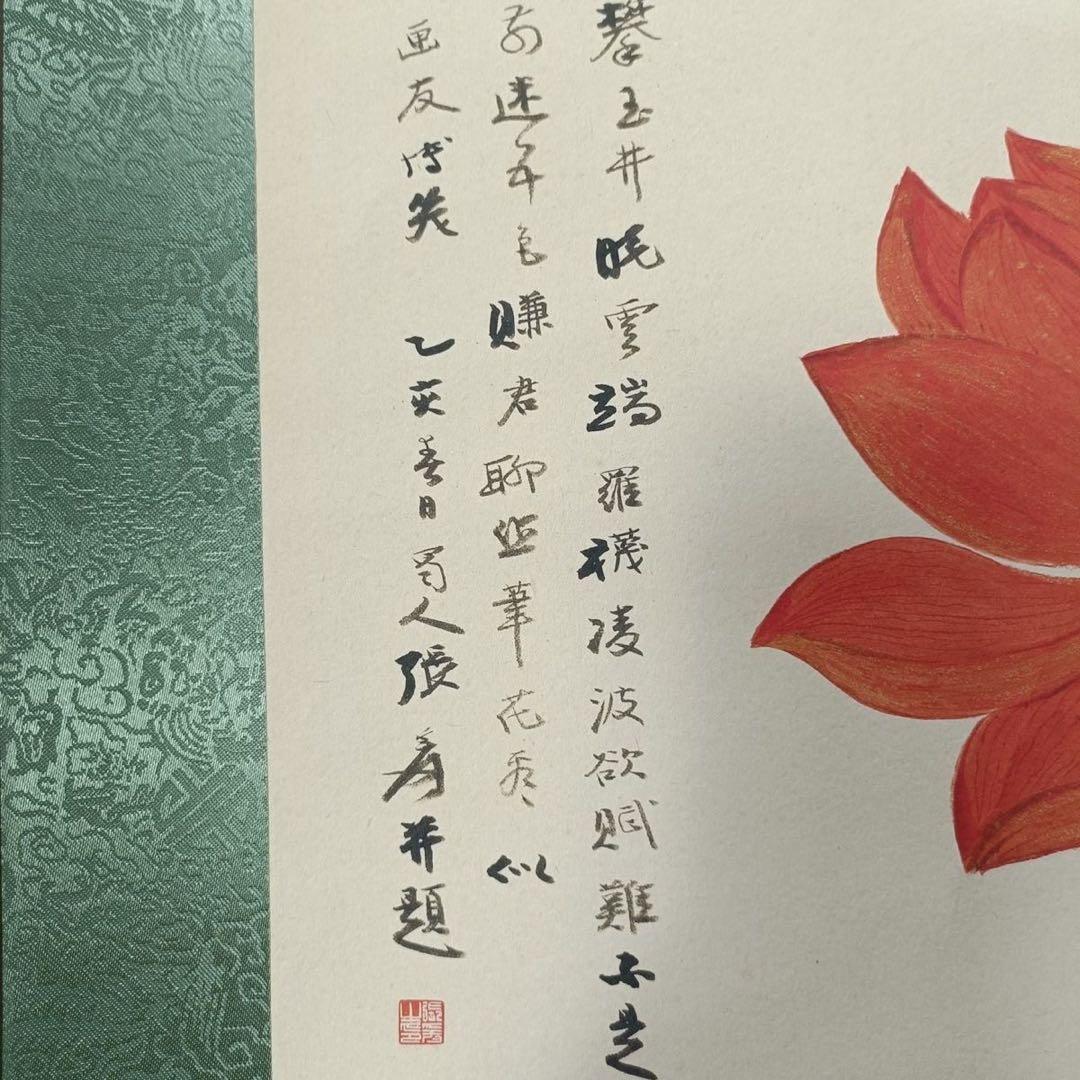 攀玉井晚雲端羅襪凌波欲賦難不是
前迷年色賺君聊與筆花看 似
画友博笑 乙亥春日蜀人張爰并題